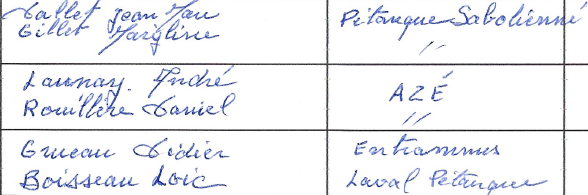 Gallet Jean Marc Pétanque Sabolienne
Gillet Marylise "
Launay André AZÉ
Rouillère Daniel "
Grueau Didier Entrammes
Boisseau Loïc Laval Pétanque